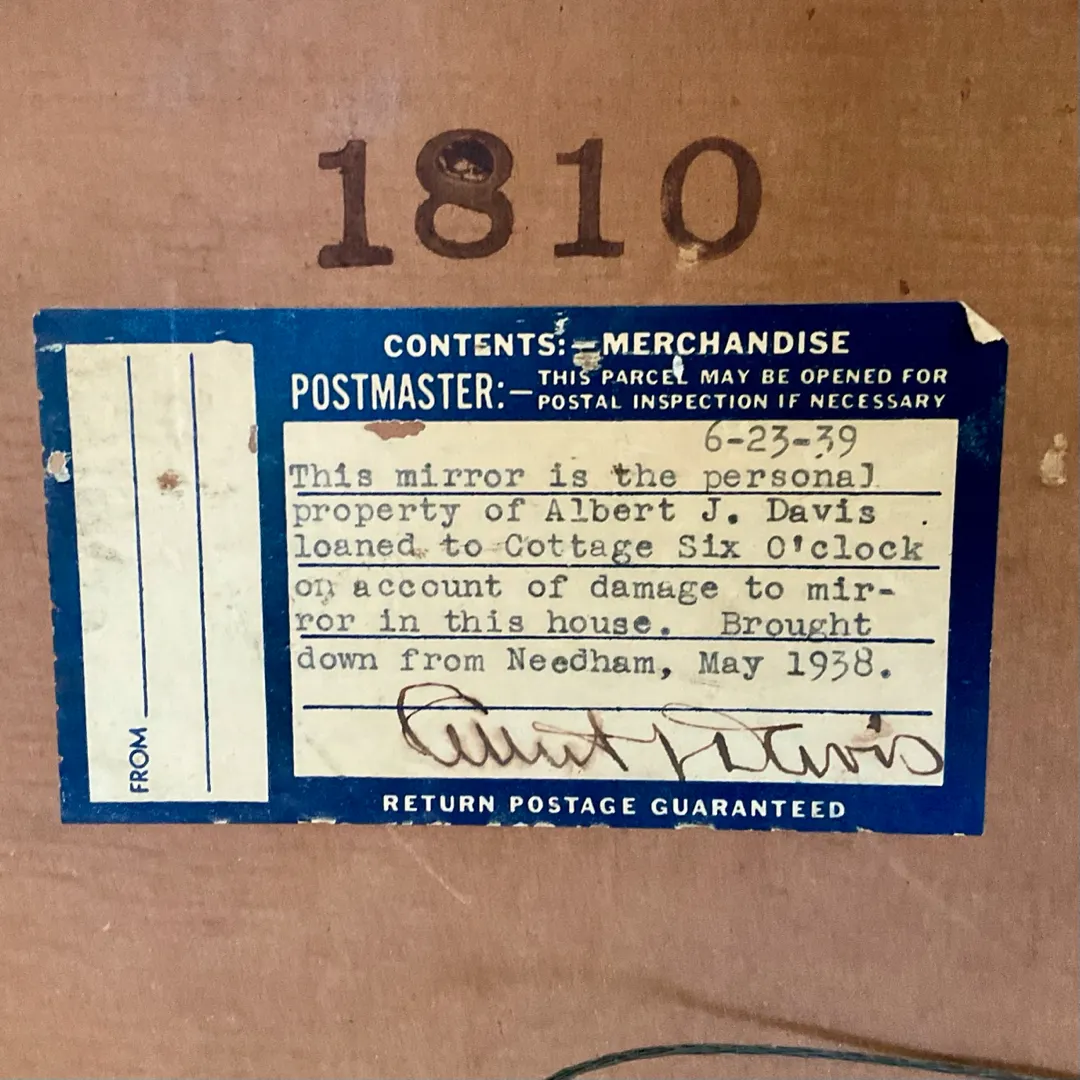 1810
CONTENTS:—MERCHANDISE
POSTMASTER:— THIS PARCEL MAY BE OPENED FOR
POSTAL INSPECTION IF NECESSARY
6-23-39
This mirror is the personal
property of Albert J. Davis
loaned to Cottage Six O'clock
on account of damage to mir-
ror in this house. Brought
down from Needham, May 1938.
Albert J Davis
RETURN POSTAGE GUARANTEED
FROM